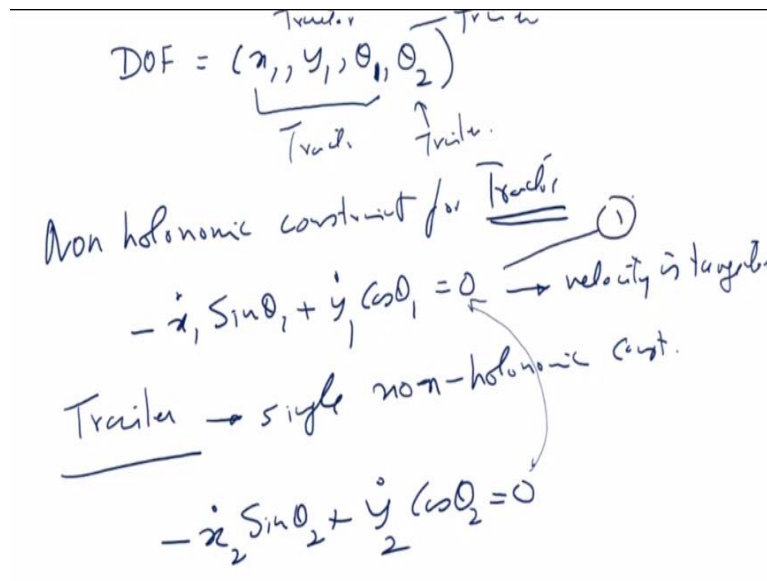 Tractor Trailer
DOF = (x₁, y₁, θ₁, θ₂)
Tract. Trailer.
Non holonomic constraint for Tractor
①
-ẋ₁ Sinθ₁ + ẏ₁ Cosθ₁ = 0 → velocity is tangent
Trailer → single non-holonomic const.
-ẋ₂ Sinθ₂ + ẏ₂ Cosθ₂ = 0